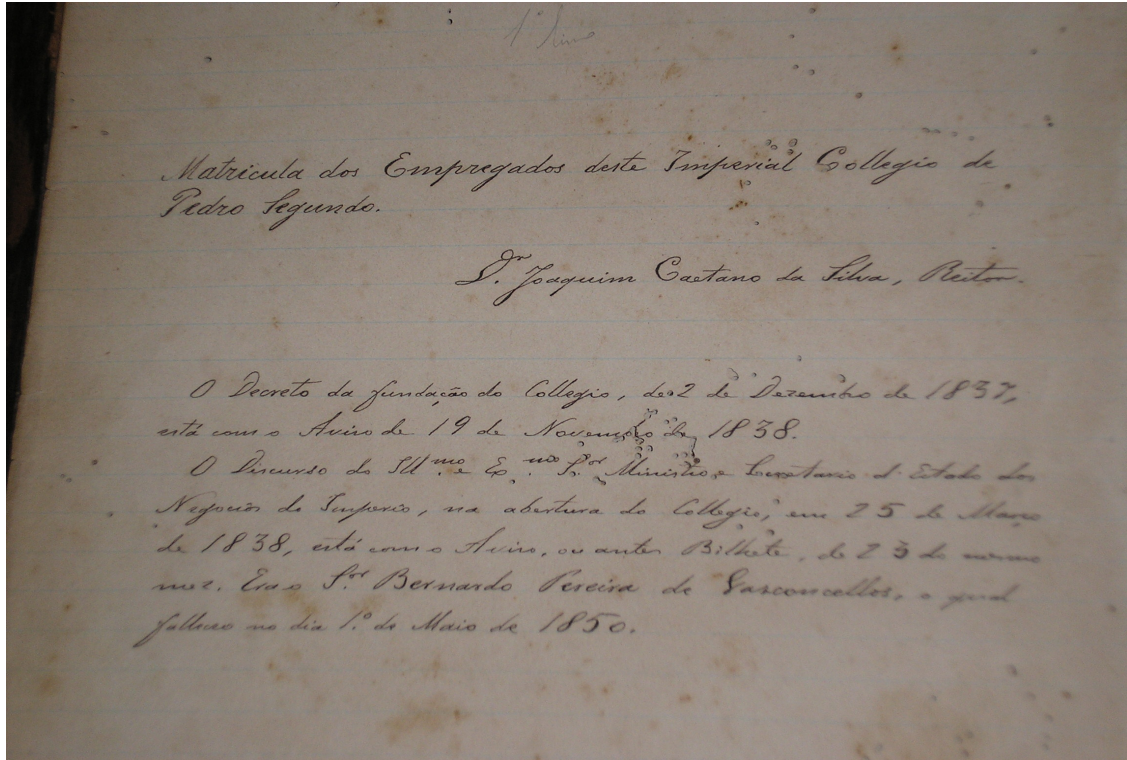 1º Livro
Matricula dos Empregados deste Imperial Collegio de
Pedro Segundo.
Dr. Joaquim Caetano da Silva, Reitor.
O Decreto da fundação do Collegio, de 2 de Dezembro de 1837,
está com o Aviso de 19 de Novembro de 1838.
O Discurso do Illmo e Exmo Sor Ministro e Secretario d'Estado dos
Negocios do Imperio, na abertura do Collegio, em 25 de Março
de 1838, está com o Aviso, ou antes Bilhete, de 25 do mesmo
mez. Era o Sor Bernardo Pereira de Vasconcellos, o qual
falleceo no dia 1º de Maio de 1850.